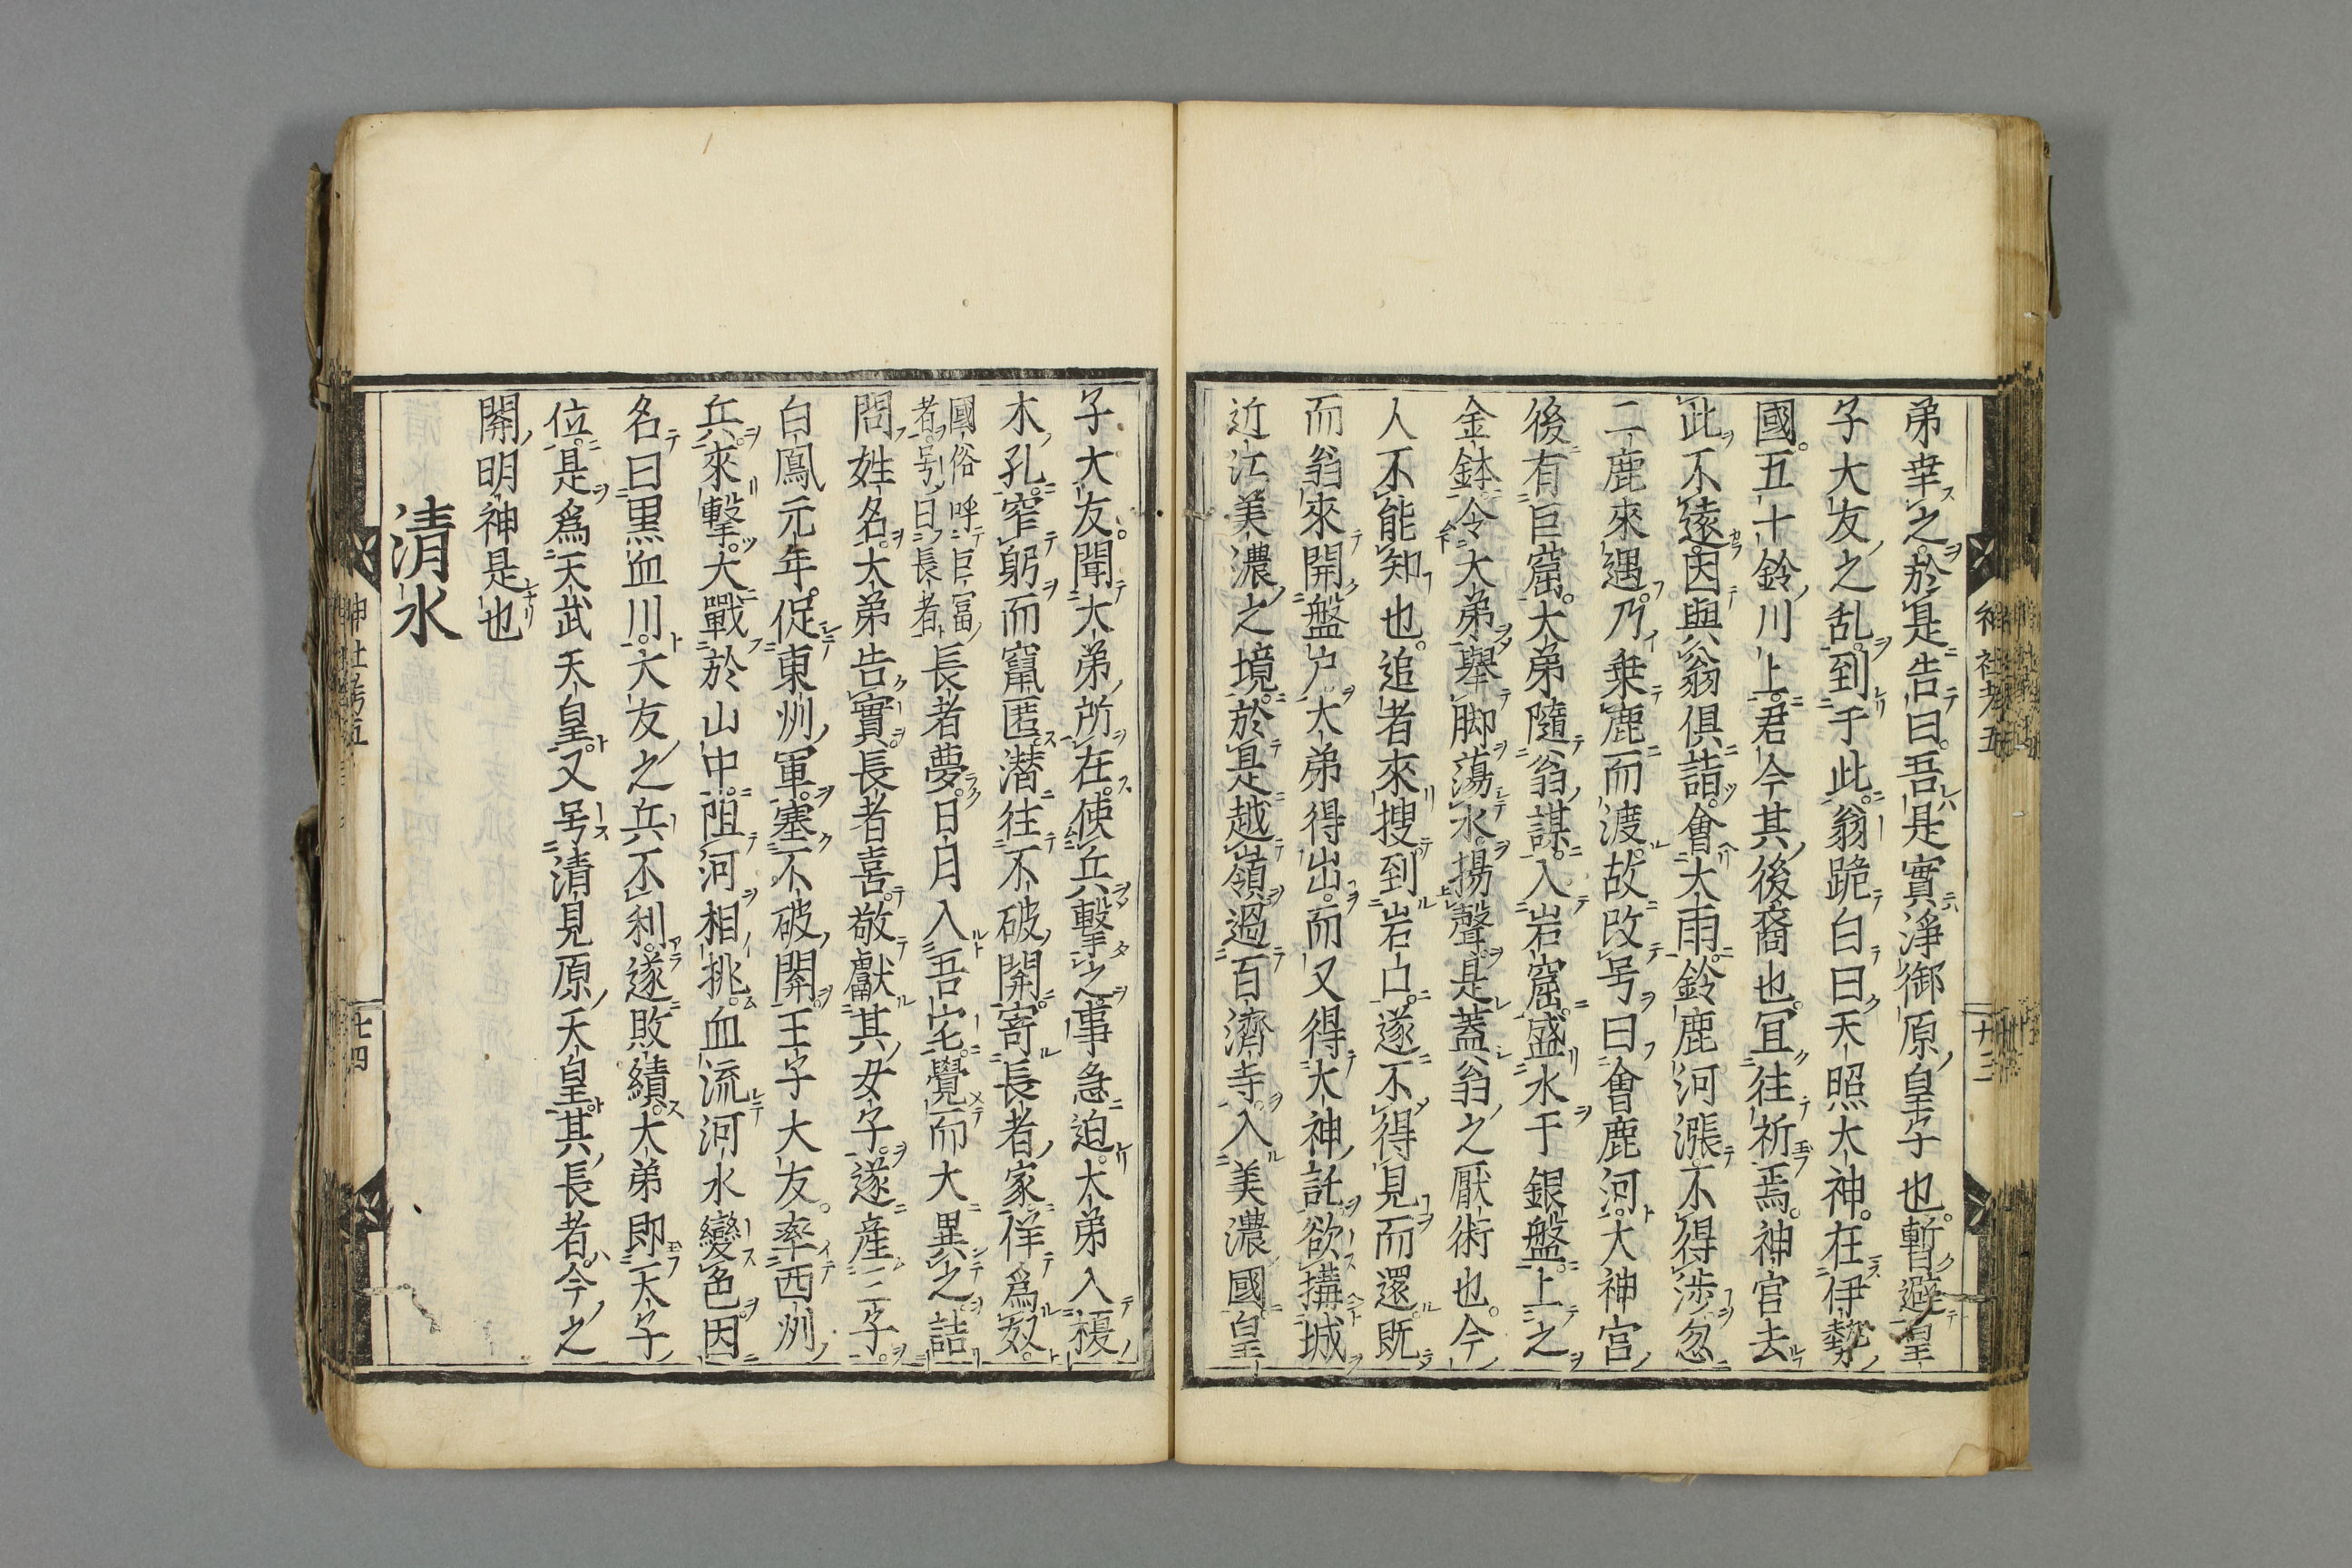 弟幸之於是告曰吾是實淨御原皇子也暫避皇
子大友之乱到于此翁跪白曰天照太神在伊勢
國五十鈴川上君今其後裔也冝徃祈焉神官去
此不遠因與翁俱詣會大雨鈴鹿河漲不得渉忽
二鹿來遇乃乗鹿而渡故改号曰會鹿河大神宮
後有巨窟大弟隨翁謀入岩窟盛水于銀盤上之
金鉢令大弟舉脚蕩水揚聲是蓋翁之厭術也今
人不能知也追者來搜到岩口遂不得見而還既
而翁來開盤户大弟得出而又得太神託欲搆城
近江美濃之境於是越嶺過百濟寺入美濃國皇
神社考五
十三
子大友聞大弟所在使兵擊之事急迫大弟入榎
木孔窄躬而竄匿潜徃不破關寄長者家佯為奴
國俗呼巨富
者号曰長者
長者夢日月入吾宅覺而大異之詰
問姓名大弟告實長者喜敬獻其女子遂産三子
白鳳元年促東州軍塞不破關王子大友率西州
兵來擊大戰於山中阻河相挑血流河水變色因
名曰黒血川大友之兵不利遂敗績大弟即天子
位是爲天武天皇又号清見原天皇其長者今之
關明神是也
清水
神社考五
十四